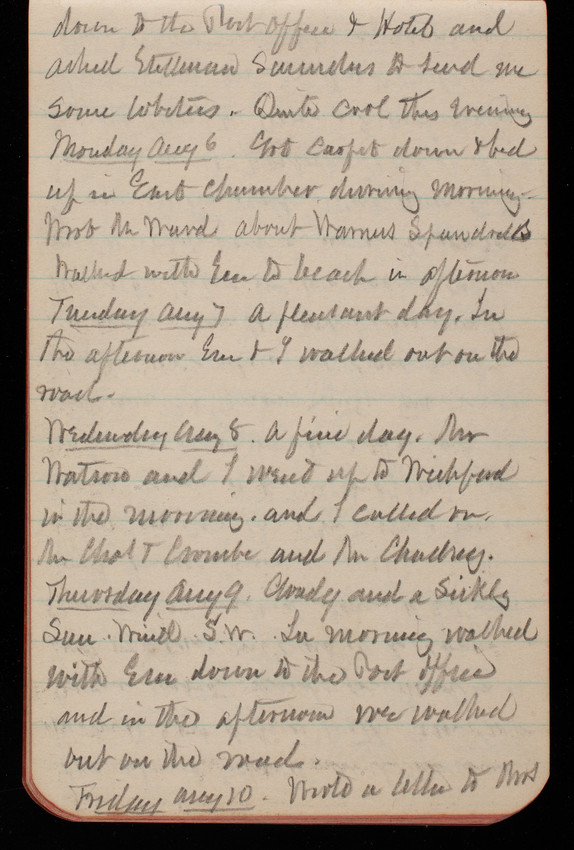 down to the Post office & Hotel and
asked Stillman Saunders to send me
some lobsters. Quite cool this evening
Monday Aug 6. Got carpet down & bed
up in East chamber during morning.
Wrote Mr Ward about Warners Spandrels
Walked with Em to beach in afternoon
Tuesday Aug 7 a pleasant day. In
the afternoon Em & I walked out on the
road.
Wednesday Aug 8. A fine day. Mr
Watson and I went up to Wickford
in the morning. and I called on.
Mr Chas T Crombe and Mr Chadsey.
Thursday Aug 9. Cloudy and a sickly
Sun. Wind. S.W. In morning walked
with Em down to the Post office
and in the afternoon we walked
out on the road.
Friday Aug 10. Wrote a letter to Mrs